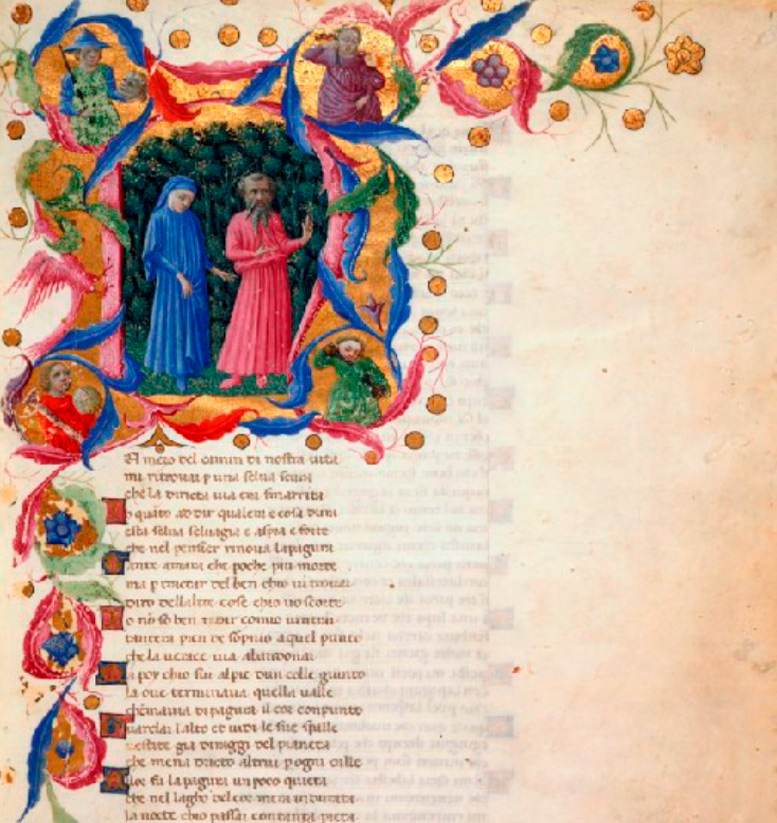 El mezo del camin di nostra uita
mi ritrouai p una selua scura
che la diricta uia era smarrita
h quãto ad dir qualera e cosa dura
esta selua seluagia e aspra e forte
che nel penser rinoua lapagura
Tante amara che poche piu morte
ma p tractar del ben chio ui trouai
diro dellaltre cose chio uo scorte
Io nõ so ben ridir comio uentrai
tantera pien de sopnio aquel punto
che la uerace uia abandonai
Ma poi chio fui alpie dun colle giunto
la oue terminaua quella ualle
che mauia di pagura il cor conpunto
Guardai lalto et uidi le sue spalle
uestite gia diraggi del pianeta
che mena dricto altrui p ogni calle
Alor fu lapagura un poco quieta
che nel lagho del cor mera indurata
la nocte chio passai contanta pieta